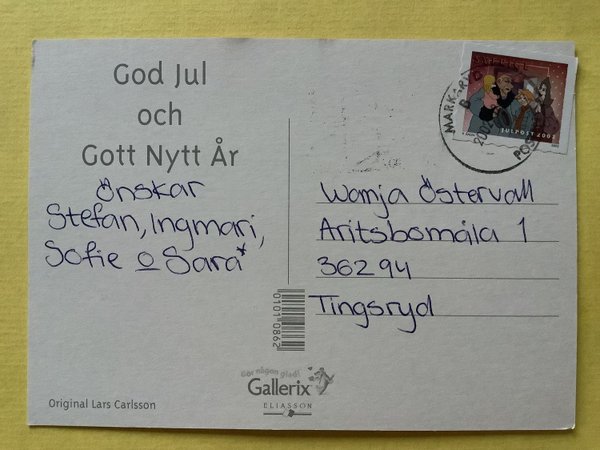 God Jul
och
Gott Nytt År
Önskar
Stefan, Ingmari,
Sofie o Sara*
Original Lars Carlsson
SVERIGE
JULPOST 2002
MARKARYD
Wanja Östervall
Aritsbomåla 1
362 94
Tingsryd
0101 0862
Gör någon glad!
Gallerix
ELIASSON